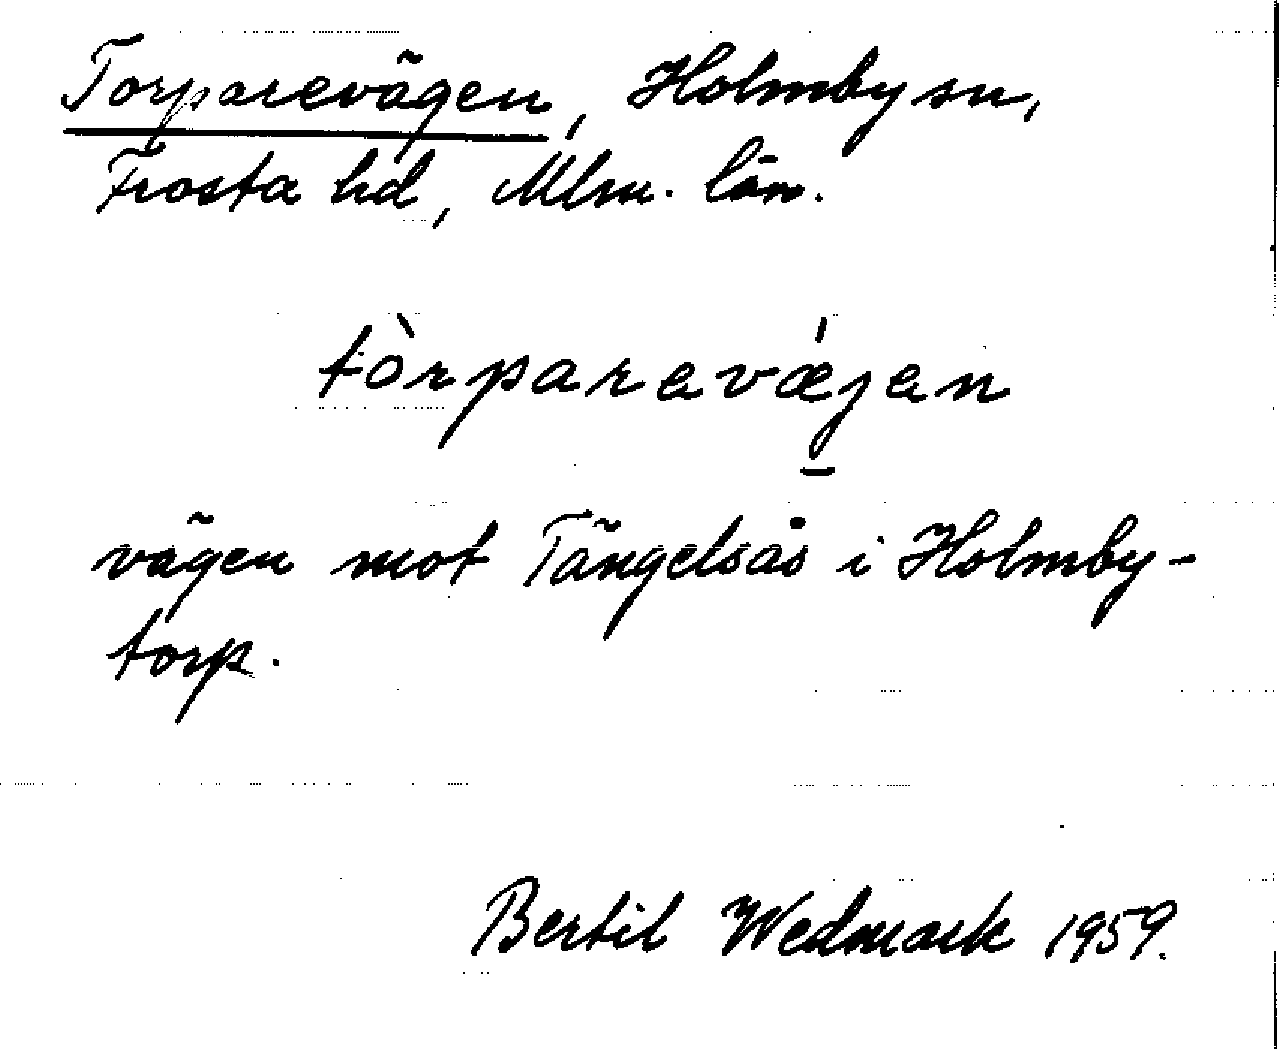 Torparevägen, Holmby sn,
Frosta hd, Mlm. län.
tòrparavǽjan
vägen mot Tängelsås i Holmby-
torp.
Bertil Wedmark 1959.